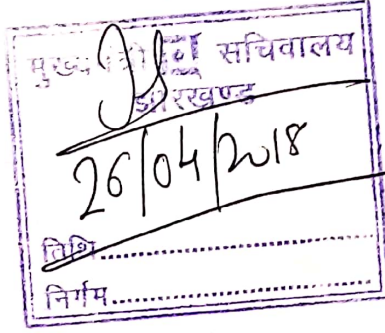 मुख्यमंत्री सचिवालय
झारखण्ड
26/04/2018
तिथि
निर्गम